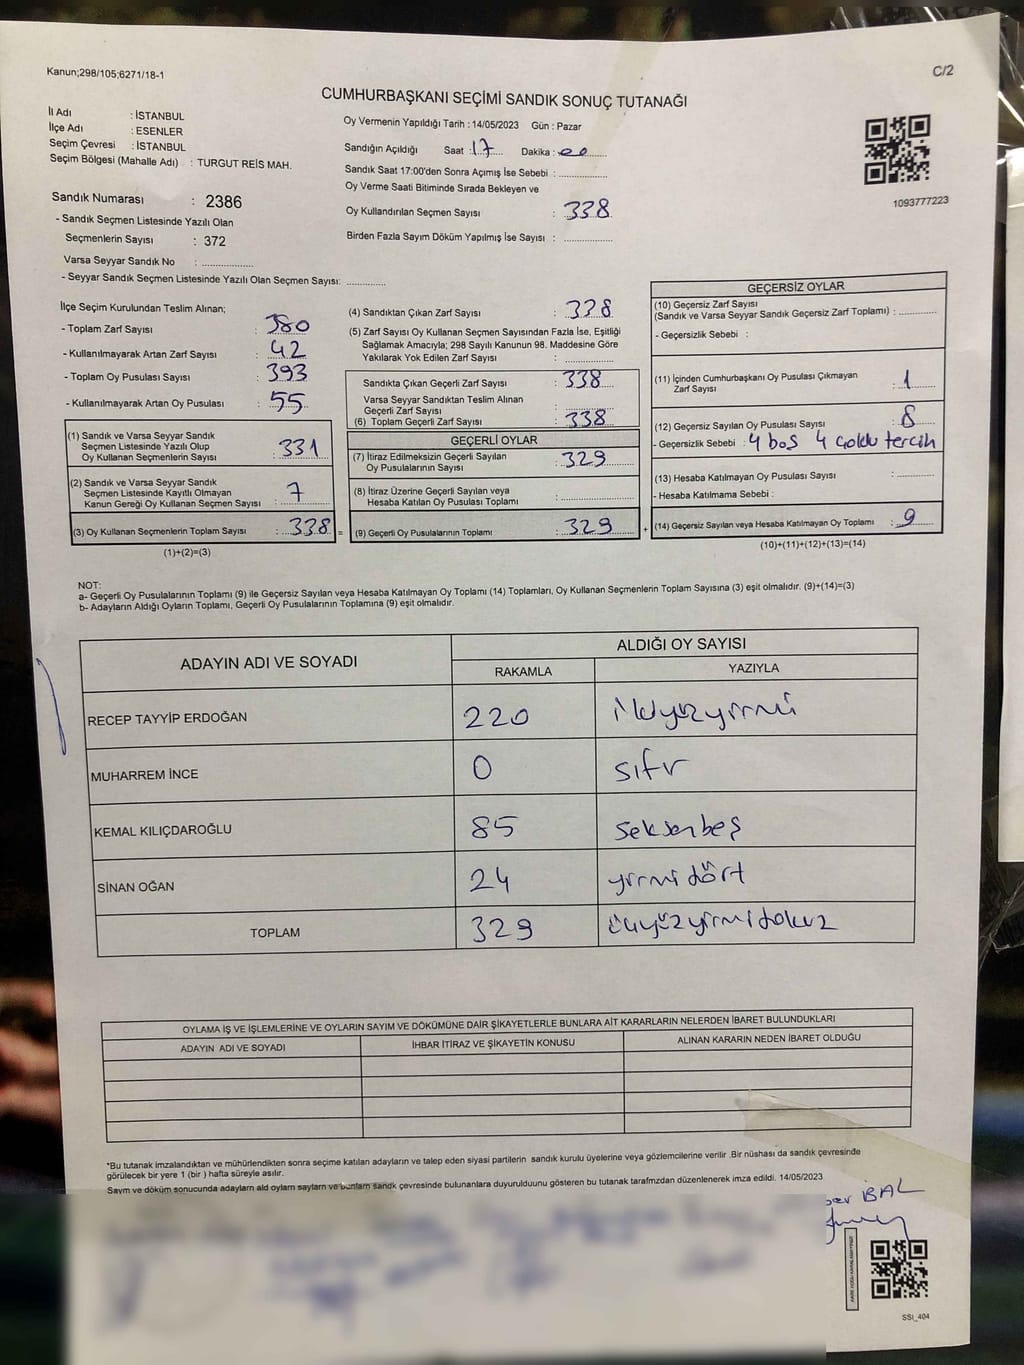 Kanun;298/105;6271/18-1
C/2
CUMHURBAŞKANI SEÇİMİ SANDIK SONUÇ TUTANAĞI
İl Adı : İSTANBUL
İlçe Adı : ESENLER
Seçim Çevresi : İSTANBUL
Seçim Bölgesi (Mahalle Adı) : TURGUT REİS MAH.
Sandık Numarası : 2386
- Sandık Seçmen Listesinde Yazılı Olan
Seçmenlerin Sayısı : 372
Varsa Seyyar Sandık No : ................
- Seyyar Sandık Seçmen Listesinde Yazılı Olan Seçmen Sayısı: ............
Oy Vermenin Yapıldığı Tarih : 14/05/2023 Gün : Pazar
Sandığın Açıldığı Saat : 17 Dakika : 00
Sandık Saat 17:00'den Sonra Açımış İse Sebebi : ................
Oy Verme Saati Bitiminde Sırada Bekleyen ve
Oy Kullandırılan Seçmen Sayısı : 338
Birden Fazla Sayım Döküm Yapılmış İse Sayısı : ................
1093777223
İlçe Seçim Kurulundan Teslim Alınan;
- Toplam Zarf Sayısı : 380
- Kullanılmayarak Artan Zarf Sayısı : 42
- Toplam Oy Pusulası Sayısı : 393
- Kullanılmayarak Artan Oy Pusulası : 55
(1) Sandık ve Varsa Seyyar Sandık
Seçmen Listesinde Yazılı Olup
Oy Kullanan Seçmenlerin Sayısı : 331
(2) Sandık ve Varsa Seyyar Sandık
Seçmen Listesinde Kayıtlı Olmayan
Kanun Gereği Oy Kullanan Seçmen Sayısı : 7
(3) Oy Kullanan Seçmenlerin Toplam Sayısı : 338 =
(1)+(2)=(3)
(4) Sandıktan Çıkan Zarf Sayısı : 338
(5) Zarf Sayısı Oy Kullanan Seçmen Sayısından Fazla İse, Eşitliği
Sağlamak Amacıyla; 298 Sayılı Kanunun 98. Maddesine Göre
Yakılarak Yok Edilen Zarf Sayısı : ................
Sandıkta Çıkan Geçerli Zarf Sayısı : 338
Varsa Seyyar Sandıktan Teslim Alınan
Geçerli Zarf Sayısı : ................
(6) Toplam Geçerli Zarf Sayısı : 338
GEÇERLİ OYLAR
(7) İtiraz Edilmeksizin Geçerli Sayılan
Oy Pusulalarının Sayısı : 329
(8) İtiraz Üzerine Geçerli Sayılan veya
Hesaba Katılan Oy Pusulası Toplamı : ................
(9) Geçerli Oy Pusulalarının Toplamı : 329 +
GEÇERSİZ OYLAR
(10) Geçersiz Zarf Sayısı
(Sandık ve Varsa Seyyar Sandık Geçersiz Zarf Toplamı) : ............
- Geçersizlik Sebebi :
(11) İçinden Cumhurbaşkanı Oy Pusulası Çıkmayan
Zarf Sayısı : 1
(12) Geçersiz Sayılan Oy Pusulası Sayısı : 8
- Geçersizlik Sebebi : 4 boş 4 çoklu tercih
(13) Hesaba Katılmayan Oy Pusulası Sayısı : ............
- Hesaba Katılmama Sebebi :
(14) Geçersiz Sayılan veya Hesaba Katılmayan Oy Toplamı : 9
(10)+(11)+(12)+(13)=(14)
NOT:
a- Geçerli Oy Pusulalarının Toplamı (9) ile Geçersiz Sayılan veya Hesaba Katılmayan Oy Toplamı (14) Toplamları, Oy Kullanan Seçmenlerin Toplam Sayısına (3) eşit olmalıdır. (9)+(14)=(3)
b- Adayların Aldığı Oyların Toplamı, Geçerli Oy Pusulalarının Toplamına (9) eşit olmalıdır.
ADAYIN ADI VE SOYADI
ALDIĞI OY SAYISI
RAKAMLA YAZIYLA
RECEP TAYYİP ERDOĞAN 220 ikiyüzyirmi
MUHARREM İNCE 0 sıfır
KEMAL KILIÇDAROĞLU 85 seksenbeş
SİNAN OĞAN 24 yirmidört
TOPLAM 329 üçyüzyirmidokuz
OYLAMA İŞ VE İŞLEMLERİNE VE OYLARIN SAYIM VE DÖKÜMÜNE DAİR ŞİKAYETLERLE BUNLARA AİT KARARLARIN NELERDEN İBARET BULUNDUKLARI
ADAYIN ADI VE SOYADI İHBAR İTİRAZ VE ŞİKAYETİN KONUSU ALINAN KARARIN NEDEN İBARET OLDUĞU
*Bu tutanak imzalandıktan ve mühürlendikten sonra seçime katılan adayların ve talep eden siyasi partilerin sandık kurulu üyelerine veya gözlemcilerine verilir .Bir nüshası da sandık çevresinde
görülecek bir yere 1 (bir ) hafta süreyle asılır.
Sayım ve döküm sonucunda adayların aldı oyların sayıları ve bunların sandık çevresinde bulunanlara duyurulduunu gösteren bu tutanak tarafımzdan düzenlenerek imza edildi. 14/05/2023
BAL
SSI_404